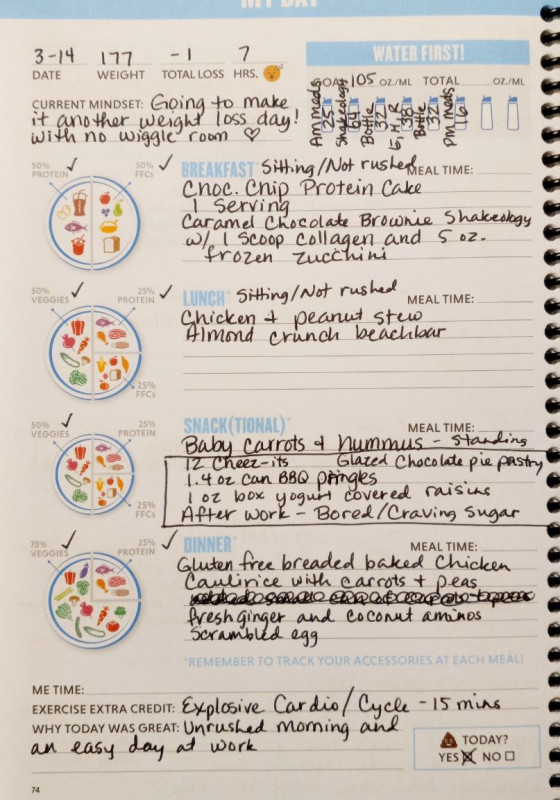 MY DAY
3-14 177 -1 7
DATE WEIGHT TOTAL LOSS HRS.
WATER FIRST!
GOAL 105 OZ./ML TOTAL OZ./ML
Am meds 25
Shakeology 64
Bottle 32
38
Bottle 32
Pm meds 16
CURRENT MINDSET: Going to make
it another weight loss day!
with no wiggle room ♡
50% PROTEIN ✓ 50% FFCs ✓
BREAKFAST* Sitting/Not rushed MEAL TIME:
Choc. Chip Protein Cake
1 Serving
Caramel Chocolate Brownie Shakeology
w/ 1 Scoop collagen and 5 oz.
frozen zucchini
50% VEGGIES ✓ 25% PROTEIN ✓
25% FFCs
LUNCH* Sitting/Not rushed MEAL TIME:
Chicken + peanut stew
Almond crunch beachbar
50% VEGGIES ✓ 25% PROTEIN
25% FFCs
SNACK(TIONAL)* MEAL TIME:
Baby Carrots + hummus - Standing
12 Cheez-its Glazed Chocolate pie pastry
1.4 oz can BBQ pringles
1 oz box yogurt covered raisins
After work - Bored/Craving Sugar
75% VEGGIES ✓ 25% PROTEIN ✓
DINNER* MEAL TIME:
Gluten free breaded baked Chicken
Caulirice with carrots + peas
fresh ginger and coconut aminos
Scrambled egg
*REMEMBER TO TRACK YOUR ACCESSORIES AT EACH MEAL!
ME TIME:
EXERCISE EXTRA CREDIT: Explosive Cardio/Cycle - 15 mins
WHY TODAY WAS GREAT: Unrushed morning and
an easy day at work
TODAY?
YES ☒ NO ☐
74